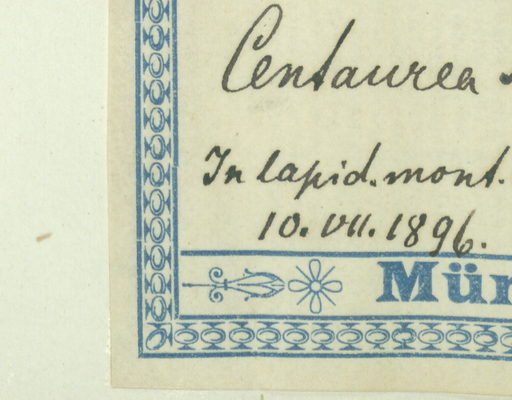 Centaurea
In lapid. mont.
10. VII. 1896.
Mün